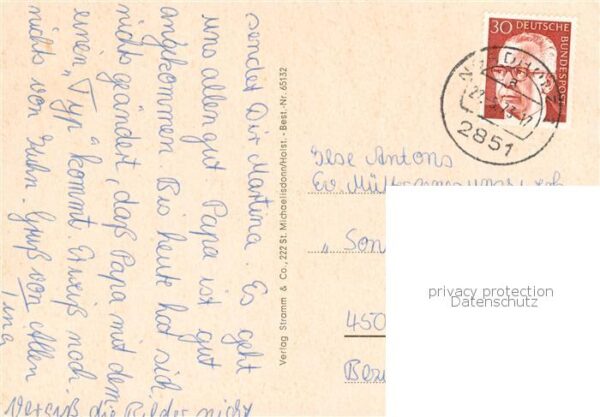 sendet Dir Martina. Es geht
uns allen gut. Papa ist gut
angekommen. Bis heute hat sich
nichts geändert, daß Papa mit dem
einen „Typ“ kommt. Er weiß noch
nichts von Gruß von Allen
Tina
die Bilder nicht
Verlag Stramm & Co., 222 St. Michaelisdonn/Holst. - Best.-Nr. 65132
30 DEUTSCHE BUNDESPOST
2851
Ilse Antons
Ev. Müttergenesungs
„Son
450
privacy protection
Datenschutz